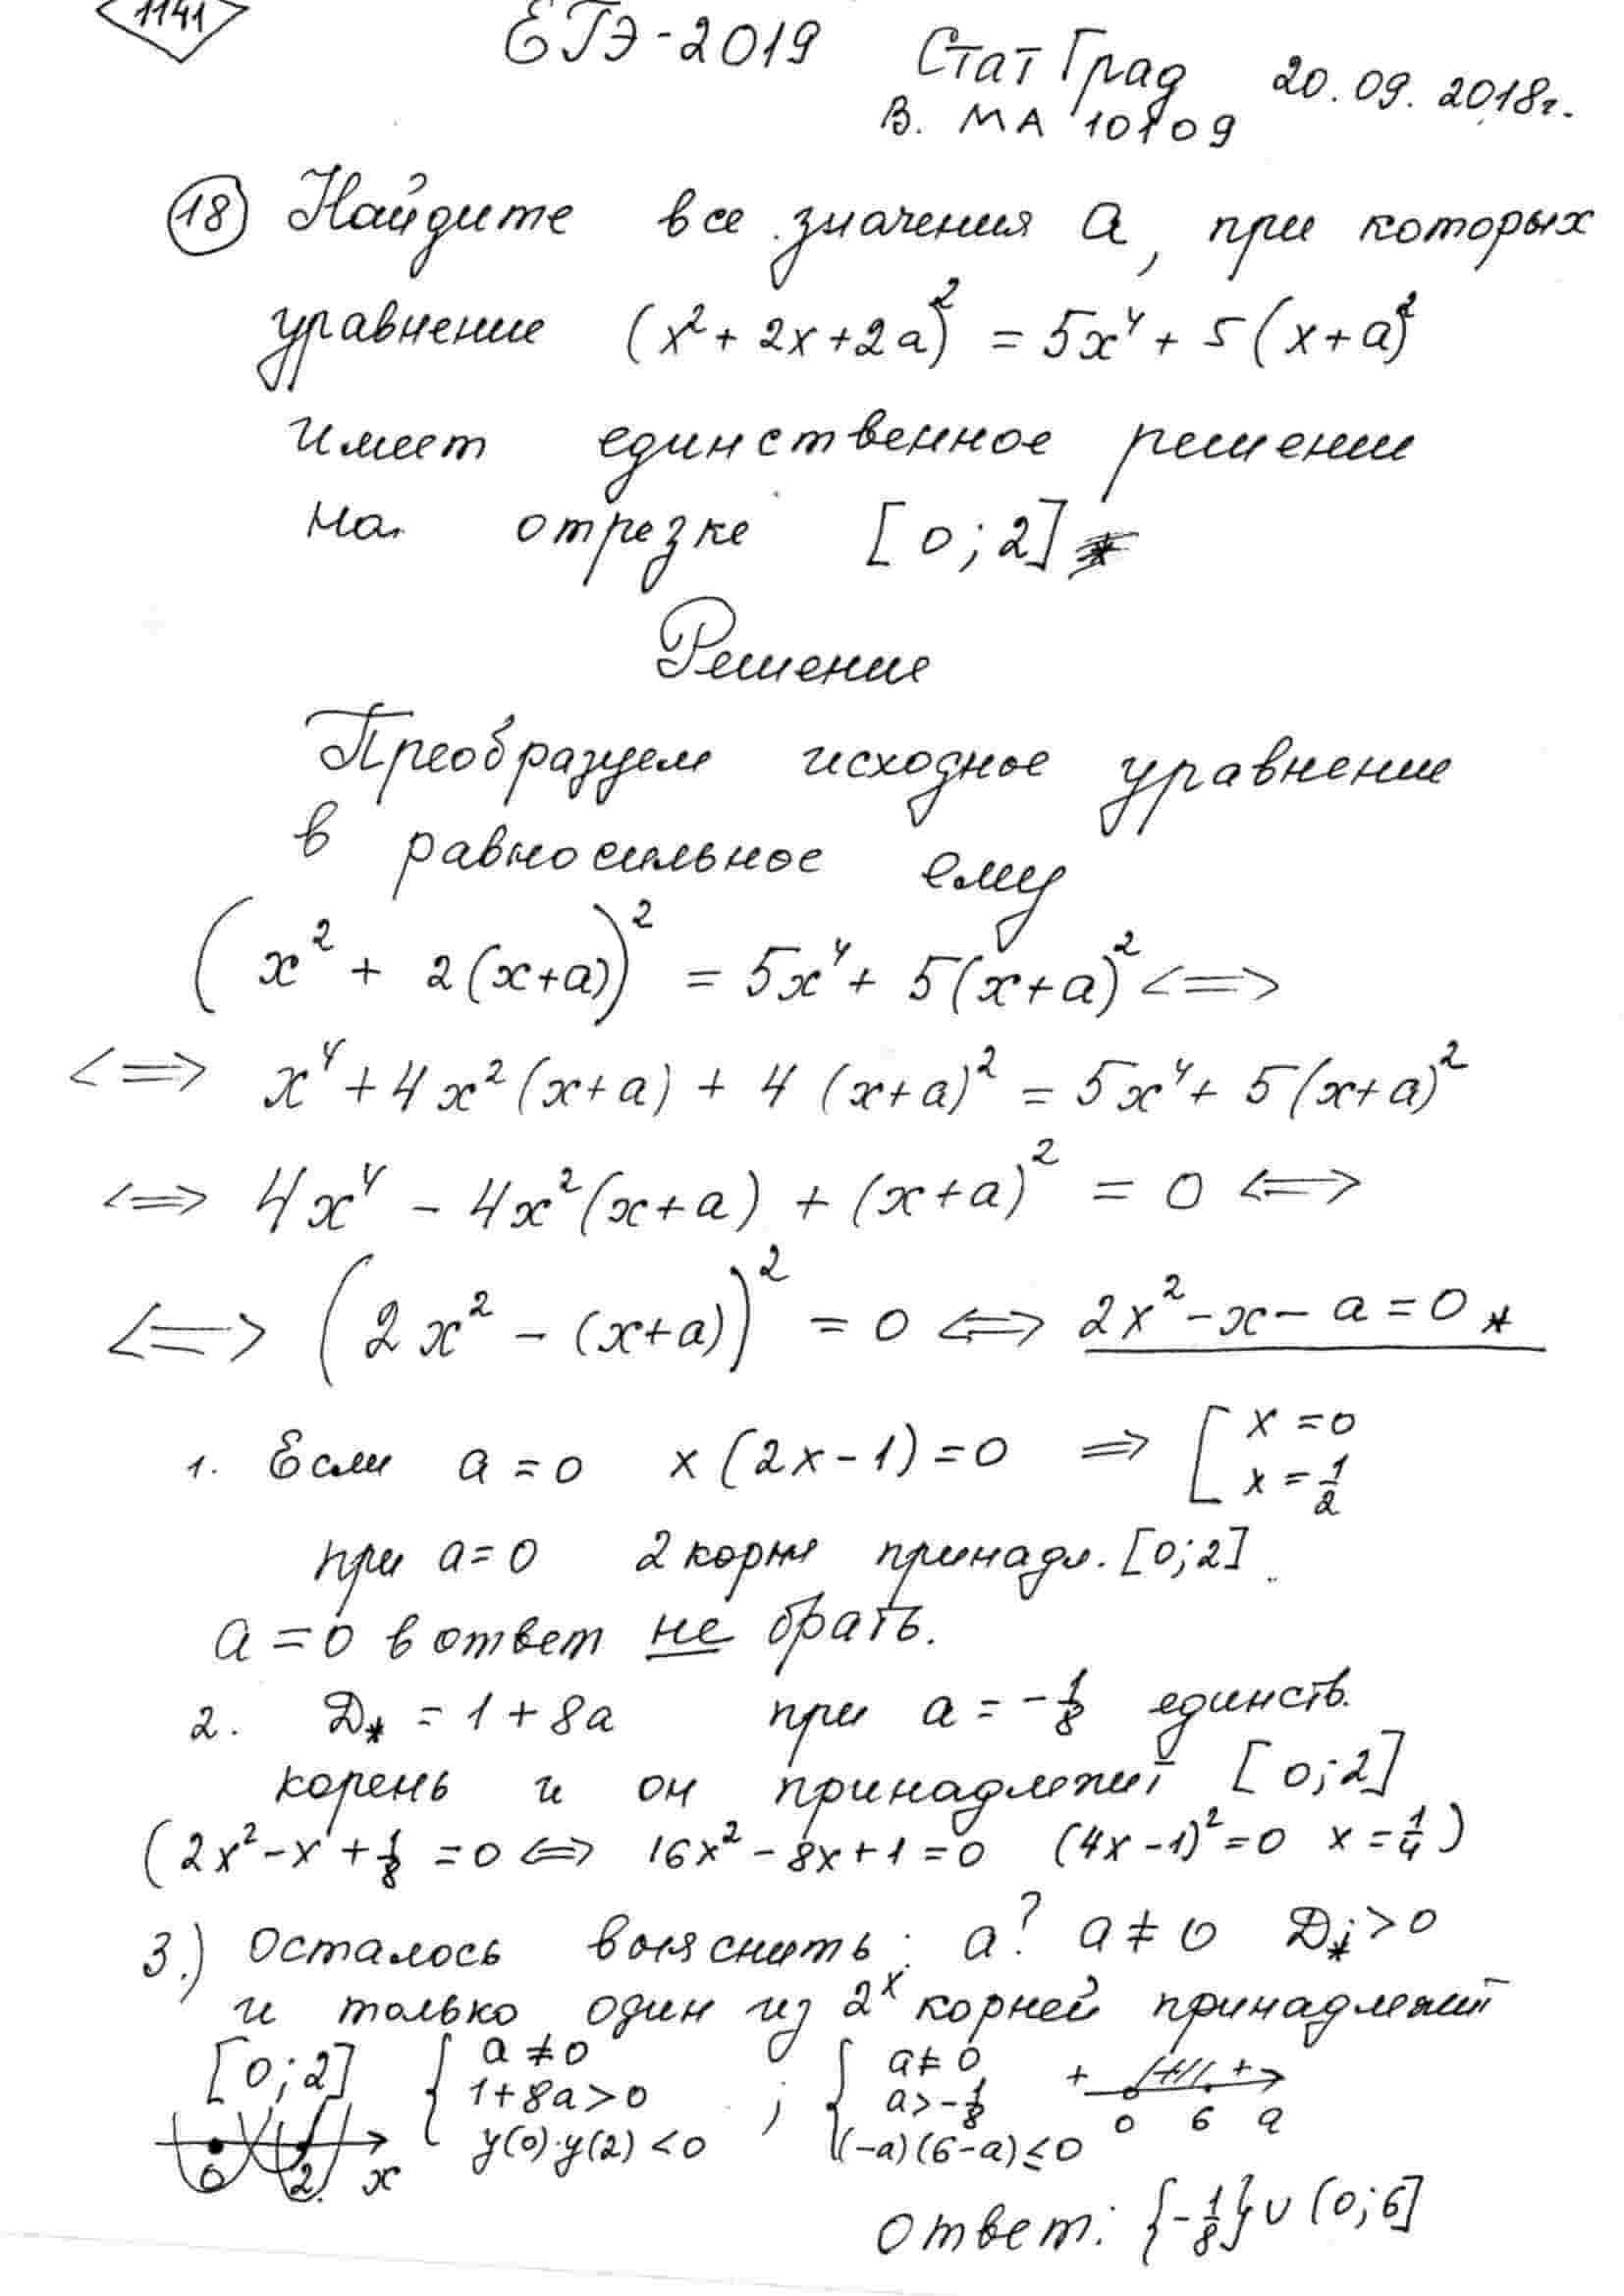 1141
ЕГЭ-2019 СтатГрад 20.09.2018г.
В. МА 10109
(18) Найдите все значения a, при которых
уравнение (x² + 2x + 2a)² = 5x⁴ + 5(x+a)²
имеет единственное решение
на отрезке [0; 2]
Решение
Преобразуем исходное уравнение
в равносильное ему
(x² + 2(x+a))² = 5x⁴ + 5(x+a)² <=>
<=> x⁴ + 4x²(x+a) + 4(x+a)² = 5x⁴ + 5(x+a)²
<=> 4x⁴ - 4x²(x+a) + (x+a)² = 0 <=>
<=> (2x² - (x+a))² = 0 <=> 2x² - x - a = 0 *
1. Если a = 0 x(2x-1) = 0 => [ x = 0 x = 1/2
при a = 0 2 корня принадл. [0; 2].
a = 0 в ответ не брать.
2. D* = 1 + 8a при a = -1/8 единств.
корень и он принадлежит [0; 2]
(2x² - x + 1/8 = 0 <=> 16x² - 8x + 1 = 0 (4x-1)² = 0 x = 1/4)
3.) Осталось выяснить: a? a ≠ 0 D* > 0
и только один из 2х корней принадлежит
[0; 2] { a ≠ 0 1 + 8a > 0 y(0)·y(2) < 0 ; { a ≠ 0 a > -1/8 (-a)(6-a) ≤ 0 + + 0 6 a
0 2 x
Ответ: {-1/8} ∪ (0; 6]